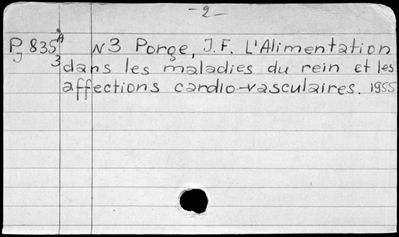 -2-
P 835 A N3 Porge, J.F. L'Alimentation
J 3 dans les maladies du rein et les
affections cardio-vasculaires. 1955